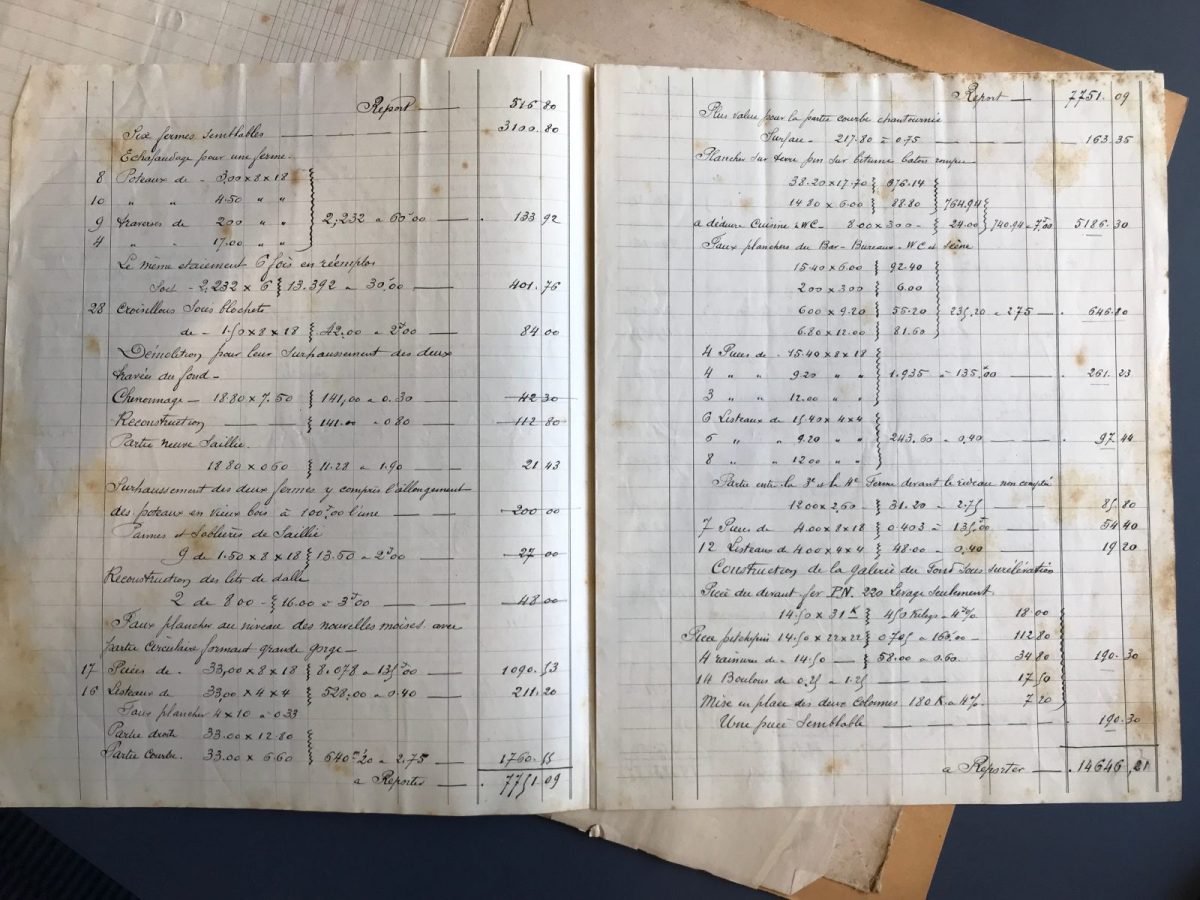 Report — 516.80
Six fermes semblables — 3100.80
Echafaudage pour une ferme.
8 Poteaux de - 3,00 x 8 x 18
10 " " 4.50 " "
9 traverses de 200 " " 2,232 a 60.00 — 133.92
4 " " 17.00 " "
Le même étaiement 6 fois en réemplois
Soit - 2,232 x 6 13.392 a 30,00 — 401.76
28 Croisillons sous blochets
de - 1.50 x 8 x 18 42.00 a 2.00 — 84.00
Démolition pour leur Surhaussement des deux
travées du fond —
Chevronnage — 18.80 x 7.50 141,00 a 0.30 — 42.30
Reconstruction — 141.00 a 0.80 — 112.80
Partie neuve Saillie.
18.80 x 0.60 11.28 a 1.90 — 21.43
Surhaussement des deux fermes y compris l'allongement
des poteaux en vieux bois à 100.00 l'une — 200.00
Pannes et Sablières de Saillie
9 de 1.50 x 8 x 18 13.50 a 2.00 — 27.00
Reconstruction des lits de dalle
2 de 8.00 - 16.00 a 3.00 — 48.00
Faux plancher au niveau des nouvelles moises avec
partie Circulaire formant grande gorge —
17 Pièces de - 33,00 x 8 x 18 8.078 a 135.00 1090.53
16 Listeaux de 33,00 x 4 x 4 528,00 a 0.40 — 211.20
Faux plancher 4 x 10 a 0.33
Partie droite 33.00 x 12.80
Partie Courbe. 33.00 x 6.60 640.20 a 2.75 — 1760.55
a Reporter — 7751.09
Report — 7751.09
Plus value pour la partie courbe chantournée
Surface - 217.80 a 0.75 — 163.35
Plancher sur terre pin sur bitume batons rompus
38.20 x 17.70 676.14
14.80 x 6.00 88.80 764.94
a déduire Cuisine & WC — 8.00 x 3.00 - 24.00 740.94 a 7.00 5186.30
Faux planchers du Bar - Bureaux - WC et Scène
15.40 x 6.00 92.40
2.00 x 3.00 6.00
6.00 x 9.20 55.20 235.20 a 2.75 — 646.80
6.80 x 12.00 81.60
4 Pièces de - 15.40 x 8 x 18
4 " " 9.20 " " 1.935 a 135.00 — 261.23
3 " " 12.00 " "
6 Listeaux de 15.40 x 4 x 4
6 " " 9.20 " " 243.60 a 0,40 — 97.44
8 " " 12.00 " "
Partie entre la 3e et la 4e Ferme devant le rideau non compté
12.00 x 2,60 31.20 a 2.75 — 85.80
7 Pièces de 4.00 x 8 x 18 0.403 a 135.00 54.40
12 Listeaux de 4.00 x 4 x 4 48.00 a 0,40 — 19.20
Construction de la Galerie du Fond sous surélévation
Pièce du devant fer P.N. 220 Levage Seulement
14.50 x 31 K 450 Kilogs a 4% 18.00
Pièce pitchpin 14.50 x 22 x 22 0.705 a 160,00 — 112.80
4 rainures de - 14.50 — 58.00 a 0.60 34.80 190.30
14 Boulons de 0.25 a 1.25 — 17.50
Mise en place des deux Colonnes 180 K. a 4% 7.20
Une pièce Semblable — 190.30
a Reporter — 14646.21